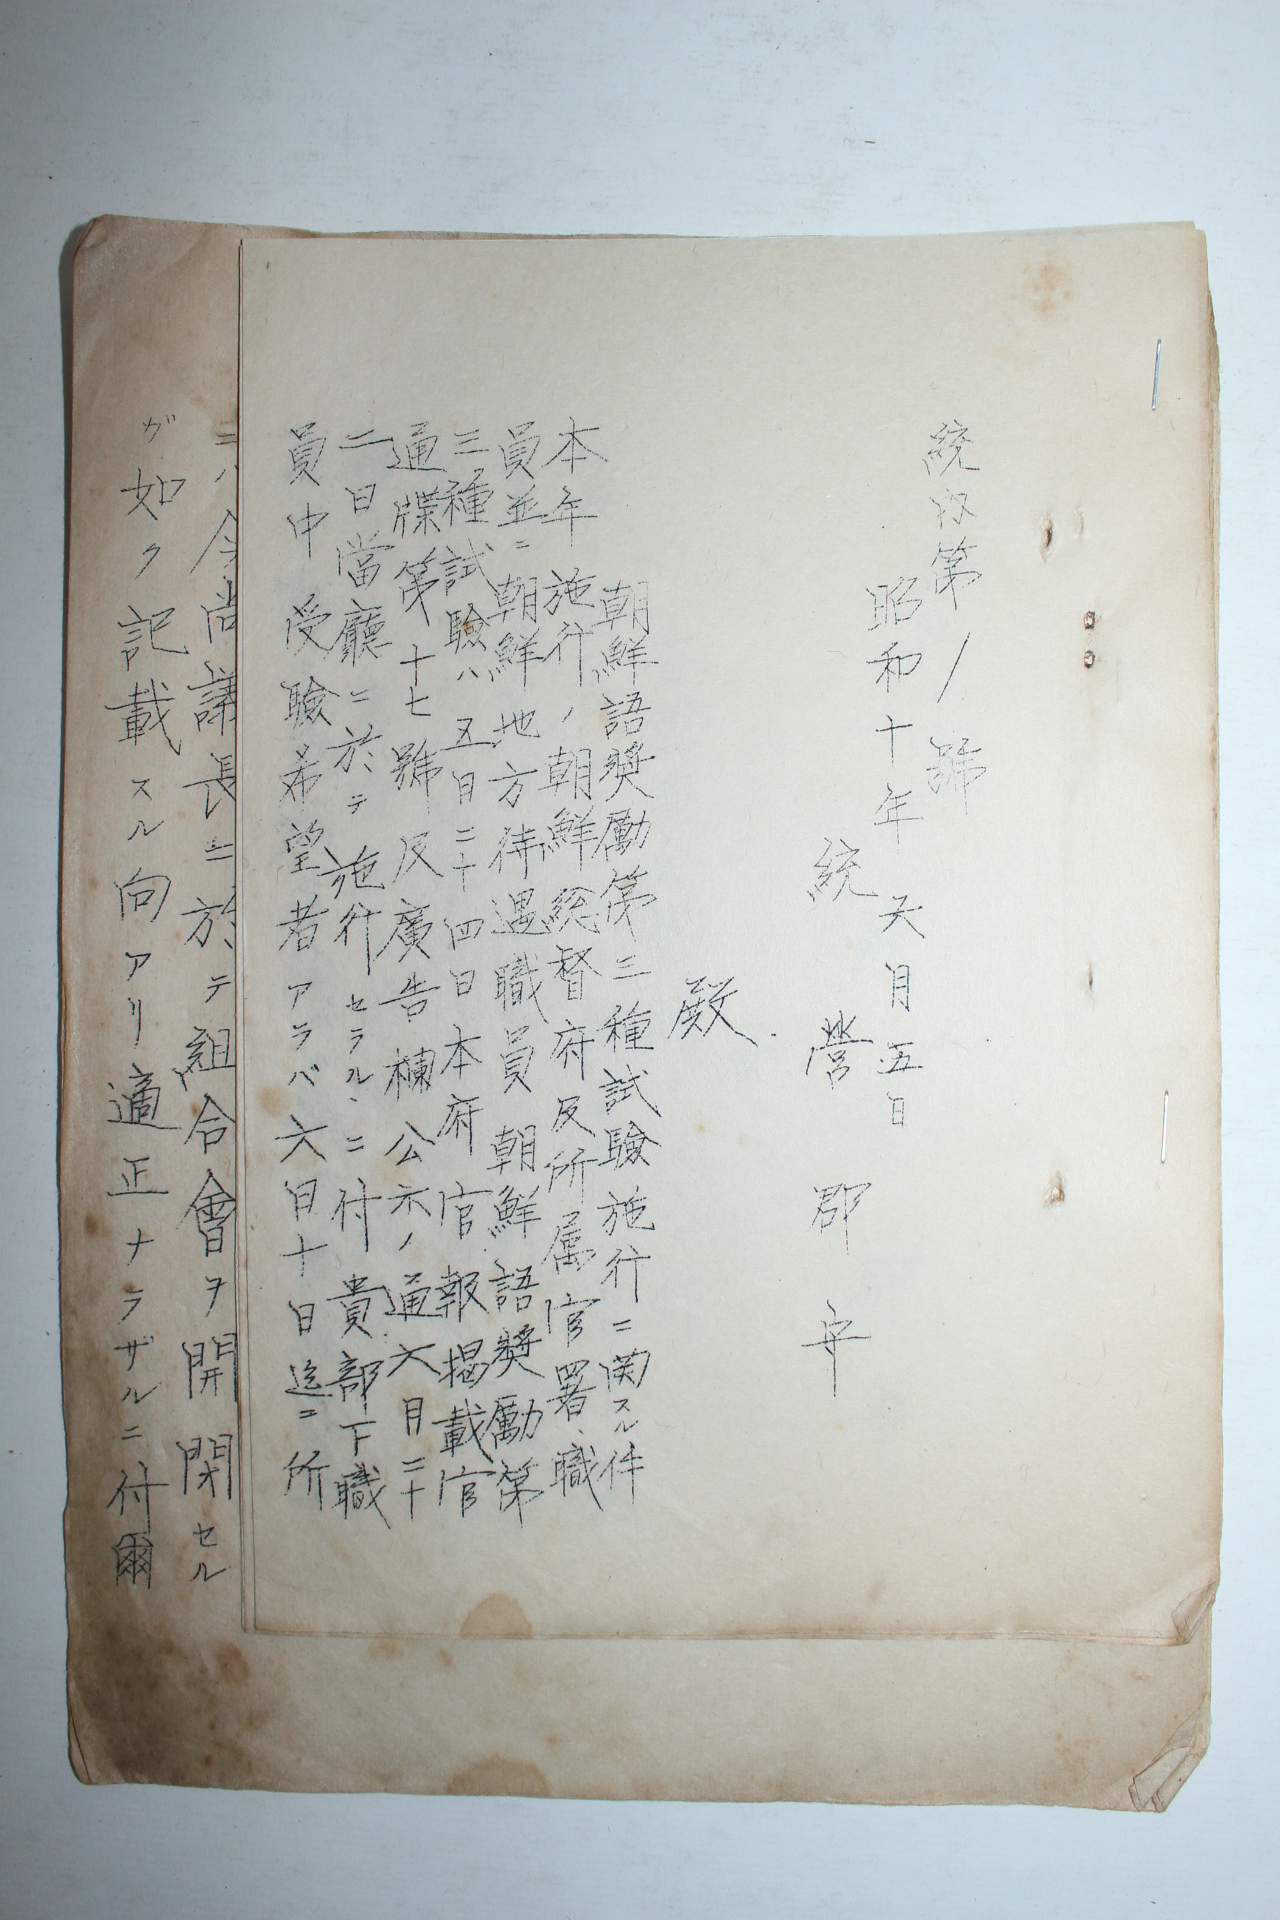 統 第1號
昭和十年六月五日
統營郡守
殿
朝鮮語奨勵第三種試驗施行ニ関スル件
本年施行ノ朝鮮総督府及所属官署職
員並ニ朝鮮地方待遇職員朝鮮語奨勵第
三種試驗ハ五日二十四日本府官報揭載官
通牒第十七號及廣告欄公示ノ通六月二十
二日當廳ニ於テ施行セラルヽニ付貴部下職
員中受驗希望者アラバ六日十日迄ニ所
ニハ今尚議長ニ於テ組合會ヲ開閉セル
ガ如ク記載スル向アリ適正ナラザルニ付爾